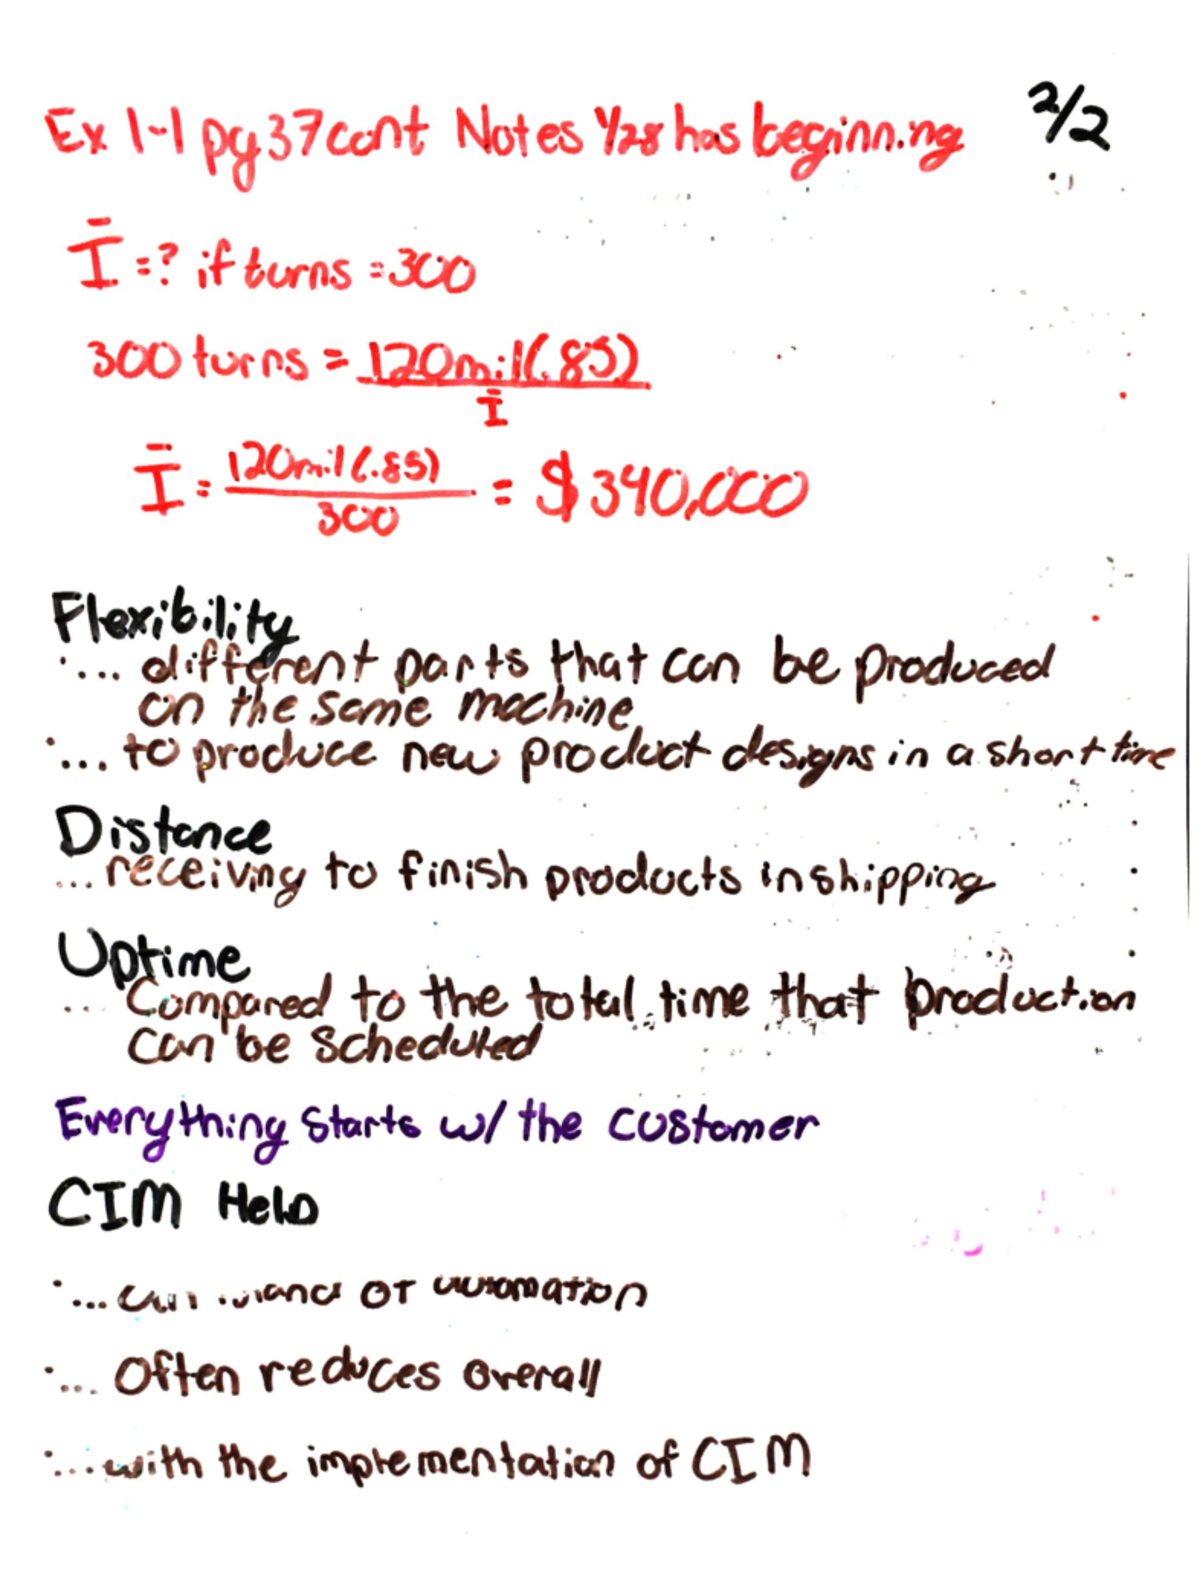 Ex 1-1 pg 37 cont Notes 1/28 has beginning 2/2
Ī =? if turns = 300
300 turns = 120mil(.85)
Ī
Ī = 120mil(.85) = $340,000
300
Flexibility
·... different parts that can be produced
on the same machine
·... to produce new product designs in a short time
Distance
... receiving to finish products in shipping
Uptime
... Compared to the total time that production
can be scheduled
Everything Starts w/ the customer
CIM Help
·... of automation
·... Often reduces overall
·... with the implementation of CIM